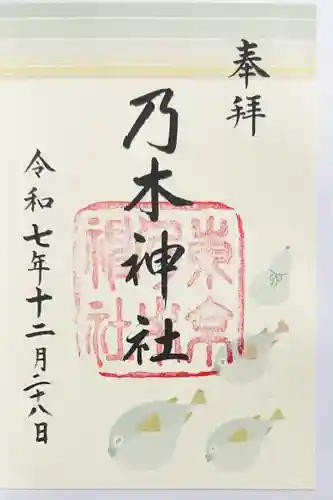 奉拝
乃木神社
東京乃木神社
令和七年十二月二十八日